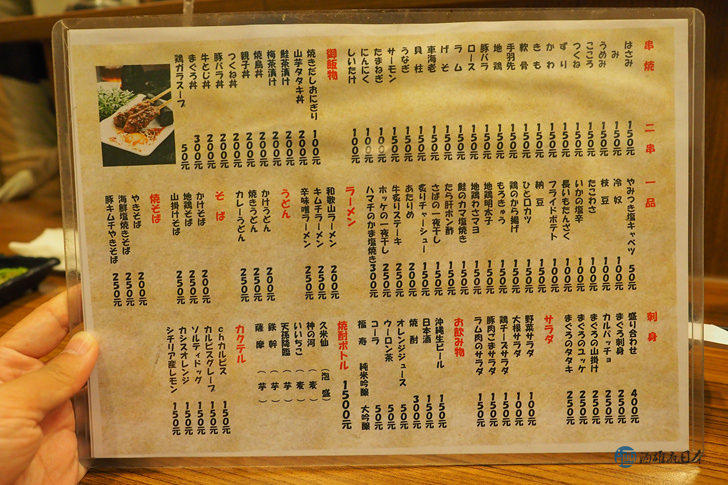 串焼 二串
はさみ 150元
みみ 150元
うめみ 150元
こころ 150元
つくね 150元
ずり 150元
かわ 150元
きも 150元
軟骨 150元
手羽先 150元
地鶏 150元
豚バラ 150元
ロース 150元
ラム 150元
げそ 150元
車海老 150元
貝柱 150元
うなぎ 150元
サーモン 150元
たまねぎ 100元
にんにく 100元
しいたけ 100元
御飯物
焼きだしおにぎり 100元
山芋タタキ丼 200元
鮭茶漬け 200元
梅茶漬け 200元
焼鳥丼 200元
親子丼 200元
つくね丼 200元
豚バラ丼 200元
牛とじ丼 200元
まぐろ丼 300元
鶏ガラスープ 50元
一品
やみつき塩キャベツ 50元
冷奴 100元
枝豆 100元
たこわさ 100元
いかの塩辛 100元
長いもたんざく 100元
フライドポテト 100元
納豆 100元
ひと口カツ 150元
鶏のから揚げ 150元
もろきゅう 150元
地鶏明太子 150元
地鶏わさマヨ 150元
鮭のカマ塩焼き 150元
たらこポン酢 150元
さばの一夜干し 150元
炙りチャーシュー 150元
あたりめ 200元
牛炙りステーキ 250元
ホッケの一夜干し 250元
ハマチのかま塩焼き 300元
ラーメン
和歌山ラーメン 200元
キムチラーメン 250元
辛味噌ラーメン 250元
うどん
かけうどん 200元
焼きうどん 250元
カレーうどん 250元
そば
かけそば 200元
地鶏そば 250元
山掛けそば 250元
焼そば
やきそば 200元
海鮮塩焼きそば 250元
豚キムチやきそば 250元
刺身
盛り合わせ 400元
まぐろ刺身 250元
カルパッチョ 250元
まぐろの山掛け 250元
まぐろのユッケ 250元
まぐろのタタキ 250元
サラダ
野菜サラダ 100元
大根サラダ 100元
鶏チーズサラダ 150元
豚肉ごまサラダ 150元
ラム肉のサラダ 150元
お飲み物
沖縄生ビール 150元
日本酒 150元
焼酎 300元
オレンジジュース 50元
ウーロン茶 50元
コーラ 50元
福寿 純米吟醸 大吟醸
焼酎ボトル 1500元
久米仙 (泡盛)
神の河 (麦)
いいちこ (麦)
天孫降臨 (芋)
鉄幹 (芋)
薩摩 (芋)
カクテル
chカルピス 150元
カルピスグレープ 150元
ソルティドッグ 150元
カシスオレンジ 150元
シチリア産レモン 150元